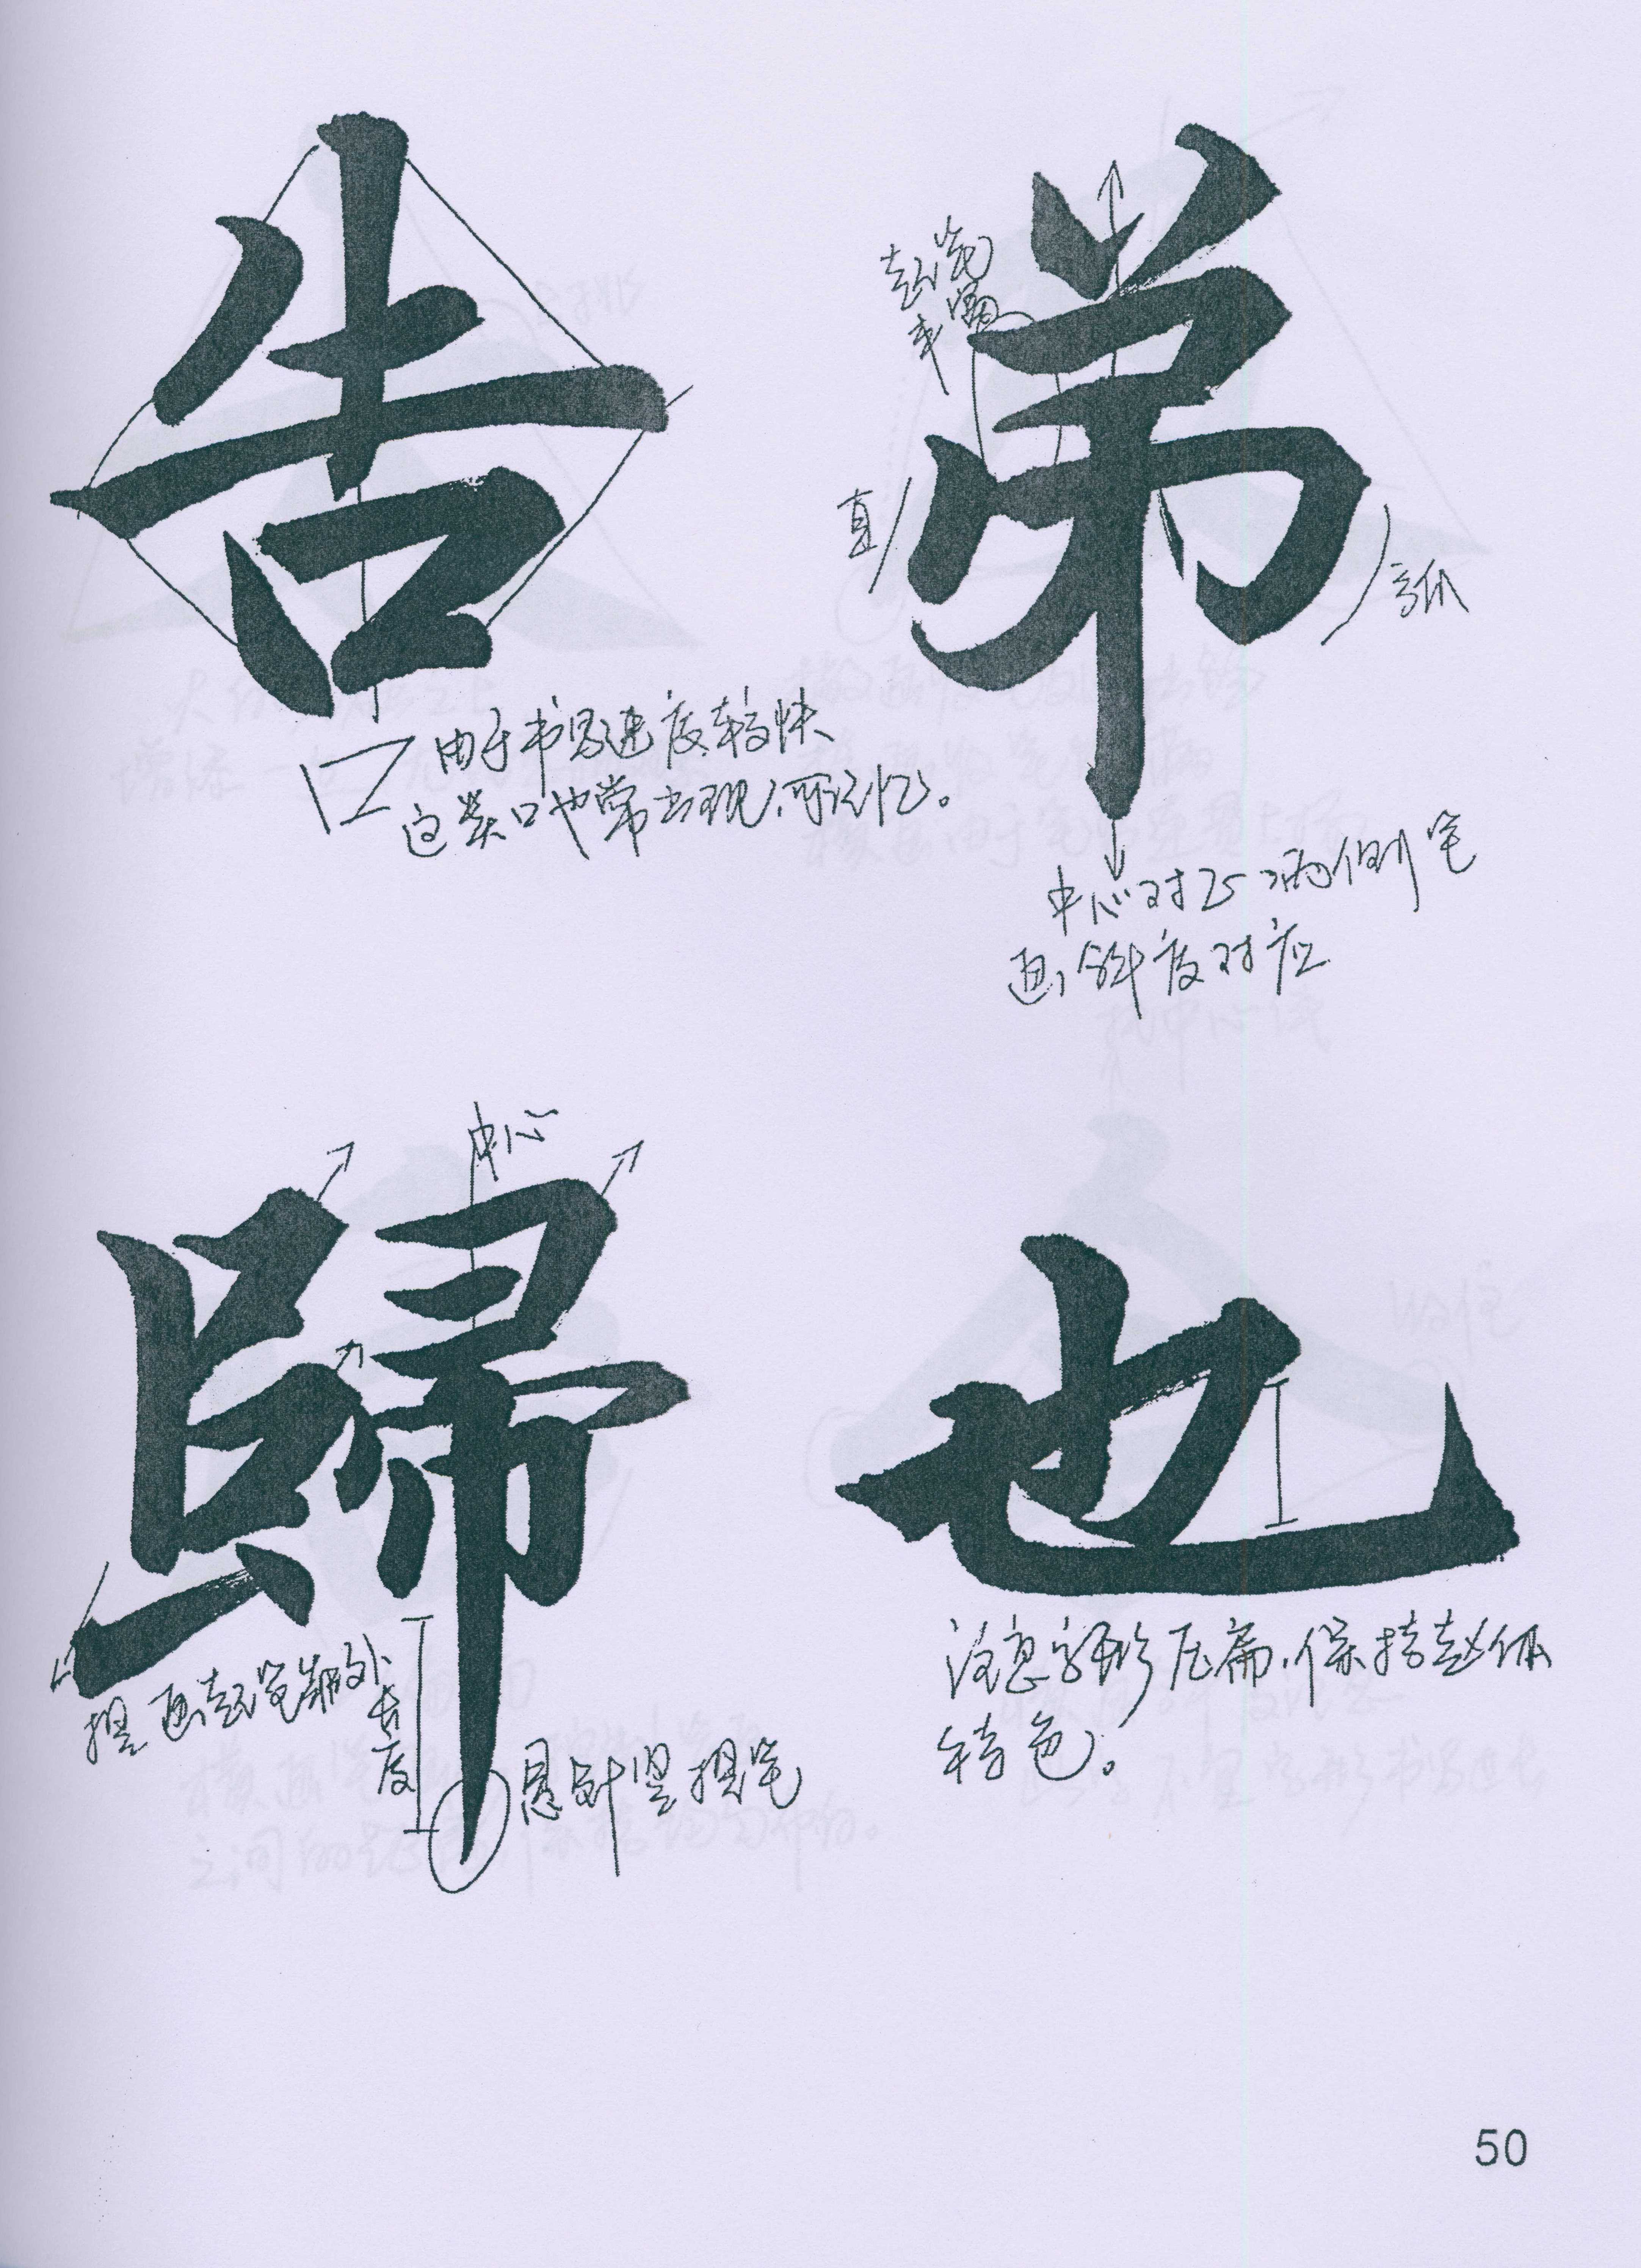 告
口由于书写速度较快
这类口也常出现，可记忆。
弟
起笔
直
弧
中心对正，两侧笔
画斜度对应
中心
歸
提画起笔朝外
长度
悬针竖提笔
也
注意字形压扁，保持赵体
特色。
50